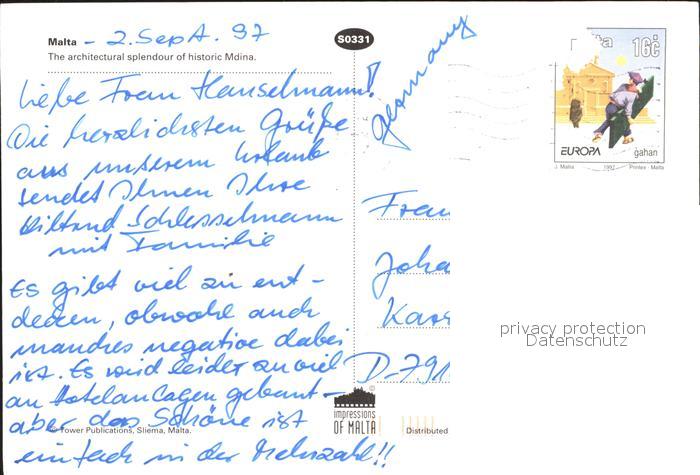 Malta - 2. Sept. 97
S0331
The architectural splendour of historic Mdina.
Liebe Frau Hanselmann!
Die herzlichsten Grüße
aus unserem Urlaub
sendet Ihnen Ihre
Wiltrud Schlesselmann
mit Familie
Es gibt viel zu ent-
decken, obwohl auch
manches negative dabei
ist. Es wird leider zu viel
an Hotelanlagen gebaut -
aber das Schöne ist
einfach in der Mehrzahl!!
© Tower Publications, Sliema, Malta.
impressions
OF MALTA
Distributed
Germany
Frau
Joha
D-791
ta 16c
EUROPA gahan
J. Malta 1997 Printex - Malta
privacy protection
Datenschutz